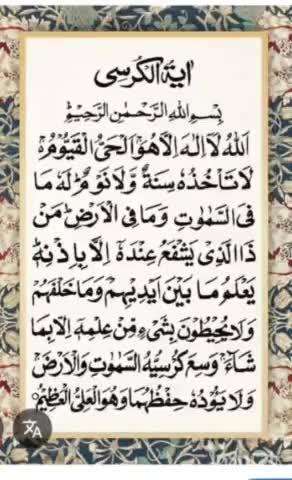 اٰیة الکرسی
بِسْمِ اللهِ الرَّحْمٰنِ الرَّحِيْمِ
اَللهُ لَاۤ اِلٰهَ اِلَّا هُوَ الْحَیُّ الْقَیُّوْمُ ۚ
لَا تَاْخُذُهٗ سِنَةٌ وَّلَا نَوْمٌ ؕ لَهٗ مَا
فِی السَّمٰوٰتِ وَمَا فِی الْاَرْضِ ؕ مَنْ
ذَا الَّذِیْ یَشْفَعُ عِنْدَهٗۤ اِلَّا بِاِذْنِهٖ ؕ
یَعْلَمُ مَا بَیْنَ اَیْدِیْهِمْ وَمَا خَلْفَهُمْ ۚ
وَلَا یُحِیْطُوْنَ بِشَیْءٍ مِّنْ عِلْمِهٖۤ اِلَّا بِمَا
شَآءَ ۚ وَسِعَ كُرْسِیُّهُ السَّمٰوٰتِ وَالْاَرْضَ ۚ
وَلَا یَـُٔوْدُهٗ حِفْظُهُمَا ۚ وَهُوَ الْعَلِیُّ الْعَظِیْمُ